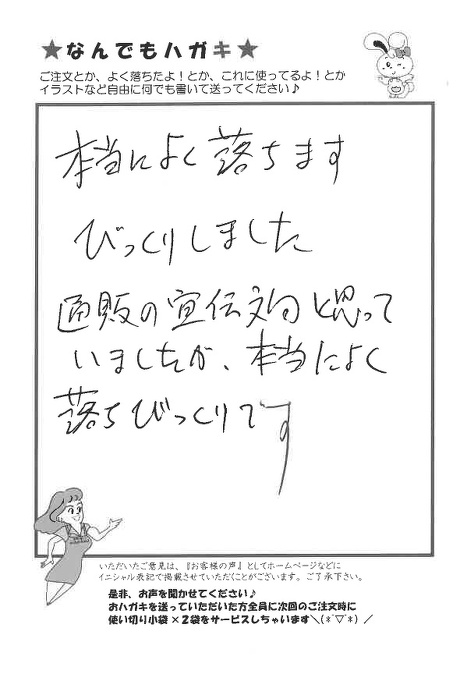 ★なんでもハガキ★
ご注文とか、よく落ちたよ！とか、これに使ってるよ！とか
イラストなど自由に何でも書いて送ってください♪
本当によく落ちます
びっくりしました
通販の宣伝文句と思って
いましたが、本当によく
落ちびっくりです
いただいたご意見は、『お客様の声』としてホームページなどに
イニシャル表記で掲載させていただくことがございます。ご了承下さい。
是非、お声を聞かせてください♪
おハガキを送っていただいた方全員に次回のご注文時に
使い切り小袋×2袋をサービスしちゃいます＼(*´▽`*)／